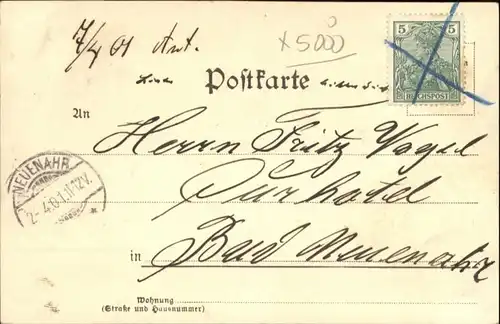 7/4 01 Ant.
x 5000
5 5
REICHSPOST
Postkarte
An
Herrn Fritz Vogel
Kurhotel
in Bad Neuenahr
NEUENAHR
2.4.01.11-12V.
*
Wohnung
(Straße und Hausnummer)